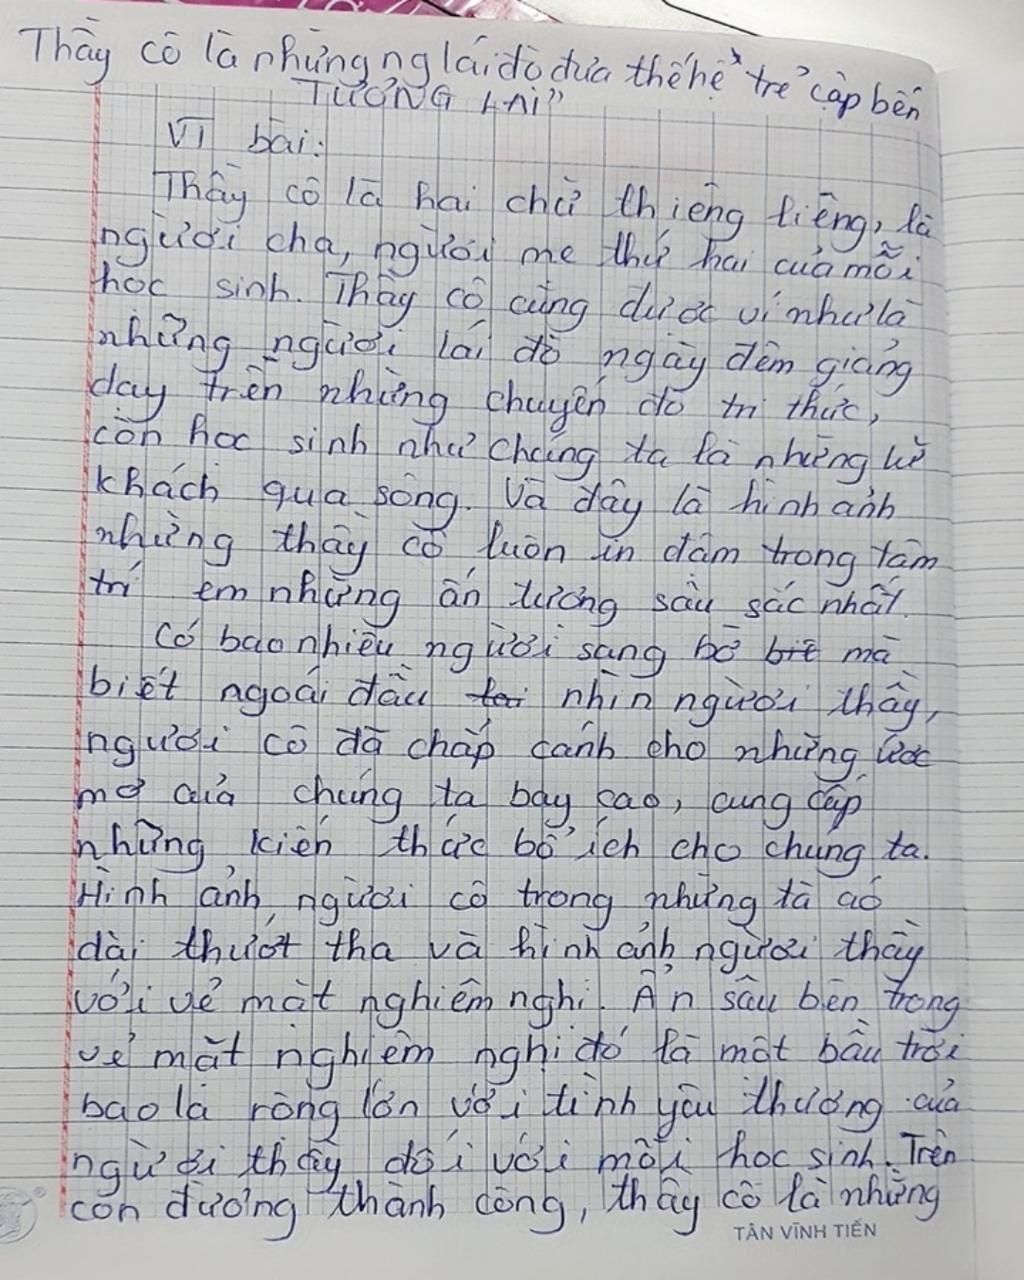 Thầy cô là những ng lái đò đưa thế hệ trẻ cập bến
TƯƠNG LAI"
VI bài:
Thầy cô là hai chữ thiêng liêng, là
người cha, người mẹ thứ hai của mỗi
học sinh. Thầy cô cũng được ví như là
những người lái đò ngày đêm giảng
dạy trên những chuyến đò tri thức,
còn học sinh như chúng ta là những
khách qua sông. Và đây là hình ảnh
những thầy cô luôn in đậm trong tâm
trí em những ấn tượng sâu sắc nhất.
Có bao nhiêu người sang bờ mà
biết ngoái đầu nhìn người thầy,
người cô đã chấp cánh cho những ước
mơ của chúng ta bay cao, cung cấp
những kiến thức bổ ích cho chúng ta.
Hình ảnh người cô trong những tà áo
dài thướt tha và hình ảnh người thầy
với vẻ mặt nghiêm nghị. Ẩn sâu bên trong
vẻ mặt nghiêm nghị đó là một bầu trời
bao la rộng lớn với tình yêu thương của
người thầy đối với mỗi học sinh. Trên
con đường thành công, thầy cô là những
TÂN VĨNH TIẾN